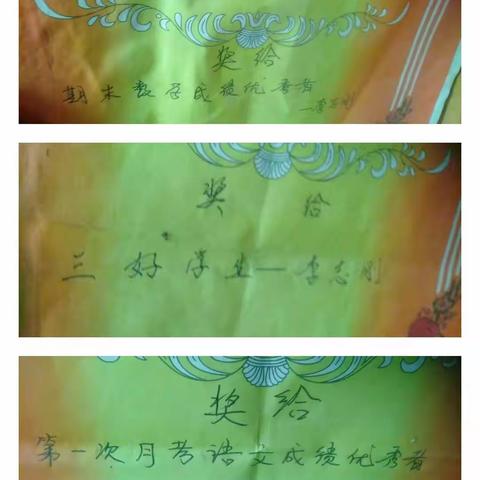 奖给
期末数学成绩优秀者
—李志刚
奖给
三好学生—李志刚
奖给
第一次月考语文成绩优秀者